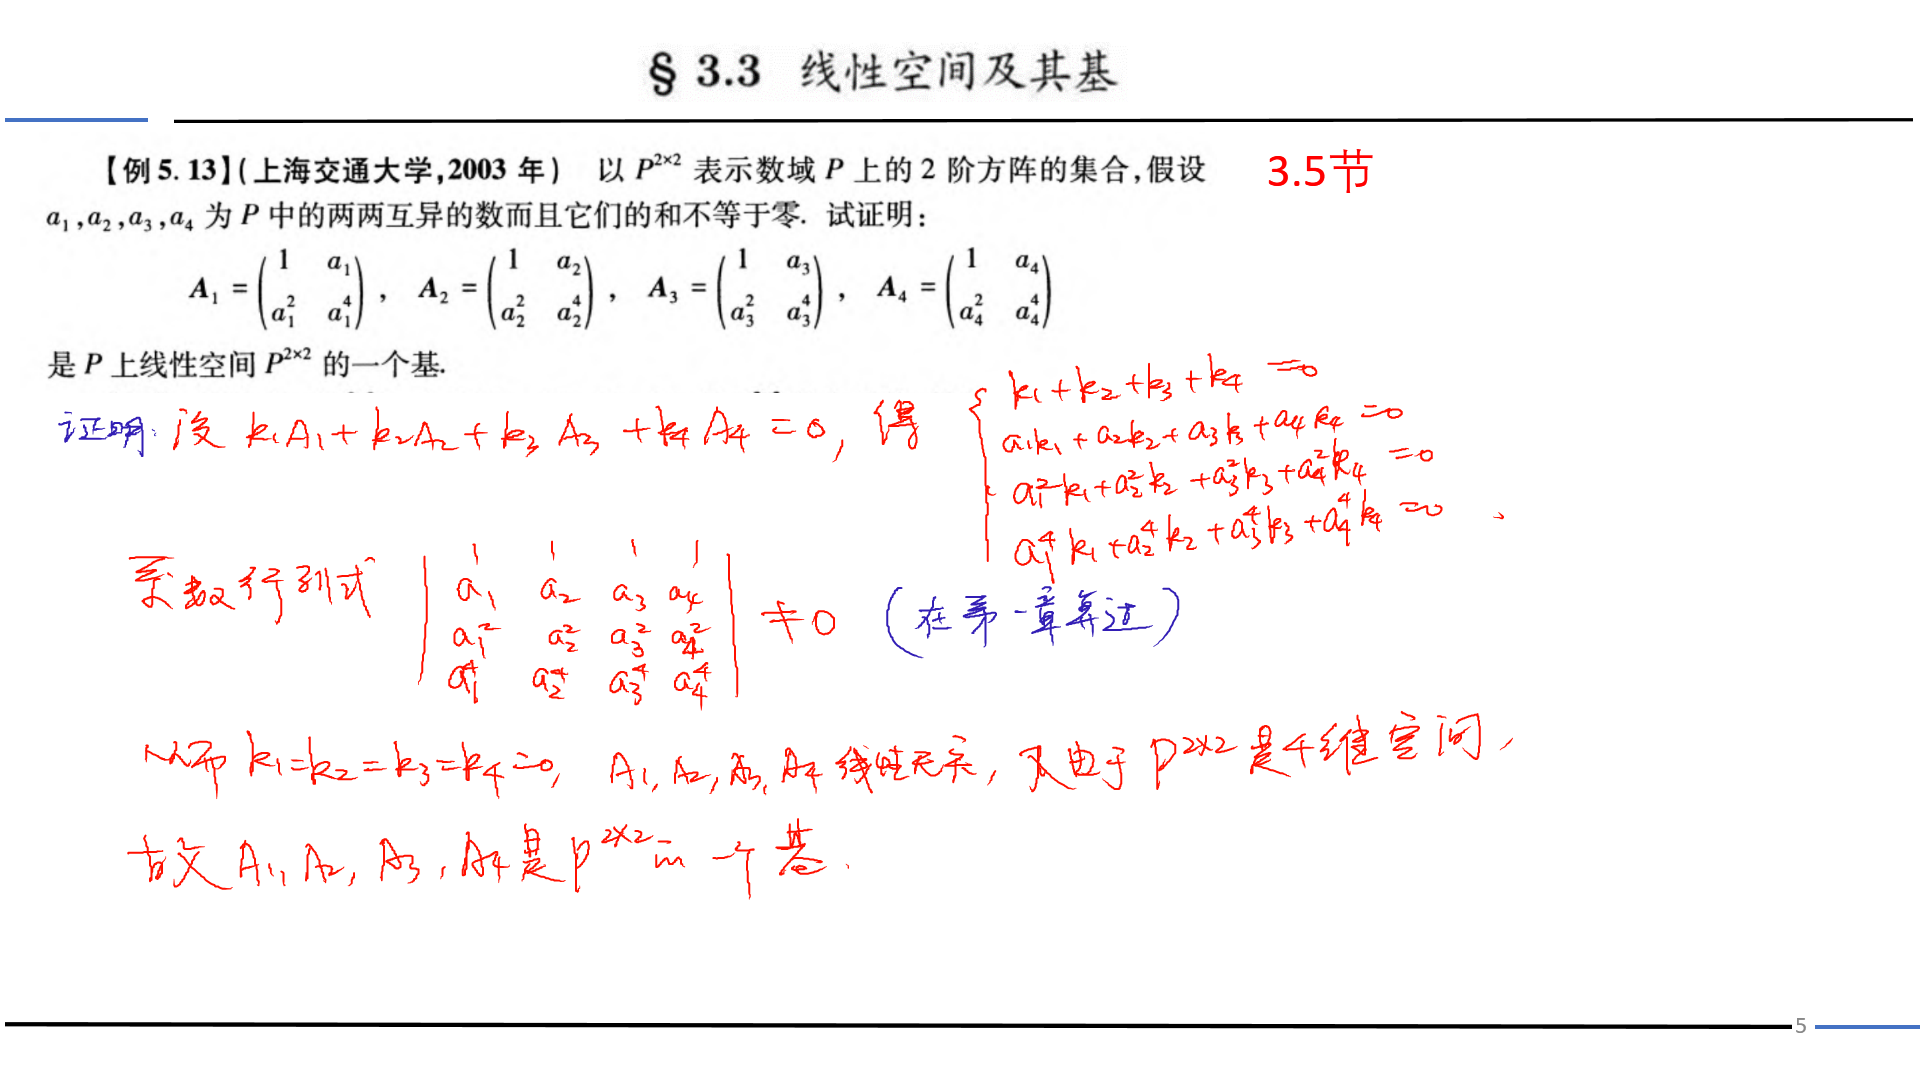 § 3.3 线性空间及其基
【例 5.13】(上海交通大学,2003 年) 以 P^{2×2} 表示数域 P 上的 2 阶方阵的集合,假设
3.5节
a₁,a₂,a₃,a₄ 为 P 中的两两互异的数而且它们的和不等于零. 试证明:
A₁ = \begin{pmatrix} 1 & a₁ \\ a₁² & a₁⁴ \end{pmatrix}, A₂ = \begin{pmatrix} 1 & a₂ \\ a₂² & a₂⁴ \end{pmatrix}, A₃ = \begin{pmatrix} 1 & a₃ \\ a₃² & a₃⁴ \end{pmatrix}, A₄ = \begin{pmatrix} 1 & a₄ \\ a₄² & a₄⁴ \end{pmatrix}
是 P 上线性空间 P^{2×2} 的一个基.
证明: 设 k₁A₁+k₂A₂+k₃A₃+k₄A₄=0, 得
k₁+k₂+k₃+k₄=0
a₁k₁+a₂k₂+a₃k₃+a₄k₄=0
a₁²k₁+a₂²k₂+a₃²k₃+a₄²k₄=0
a₁⁴k₁+a₂⁴k₂+a₃⁴k₃+a₄⁴k₄=0 、
系数行列式 \begin{vmatrix} 1 & 1 & 1 & 1 \\ a₁ & a₂ & a₃ & a₄ \\ a₁² & a₂² & a₃² & a₄² \\ a₁⁴ & a₂⁴ & a₃⁴ & a₄⁴ \end{vmatrix} ≠0 (在第一章算过)
从而 k₁=k₂=k₃=k₄=0, A₁,A₂,A₃,A₄线性无关, 又由于 P^{2×2}是4维空间,
故 A₁,A₂,A₃,A₄是P^{2×2}的一个基.
5